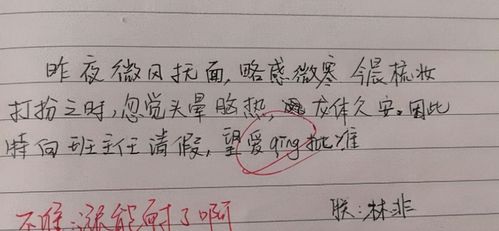 昨夜微风抚面,略感微寒 今晨梳妆
打扮之时,忽觉头晕脑热,龙体欠安。因此
特向班主任请假,望爱qing批准
朕:林非
不准:涨能耐了啊